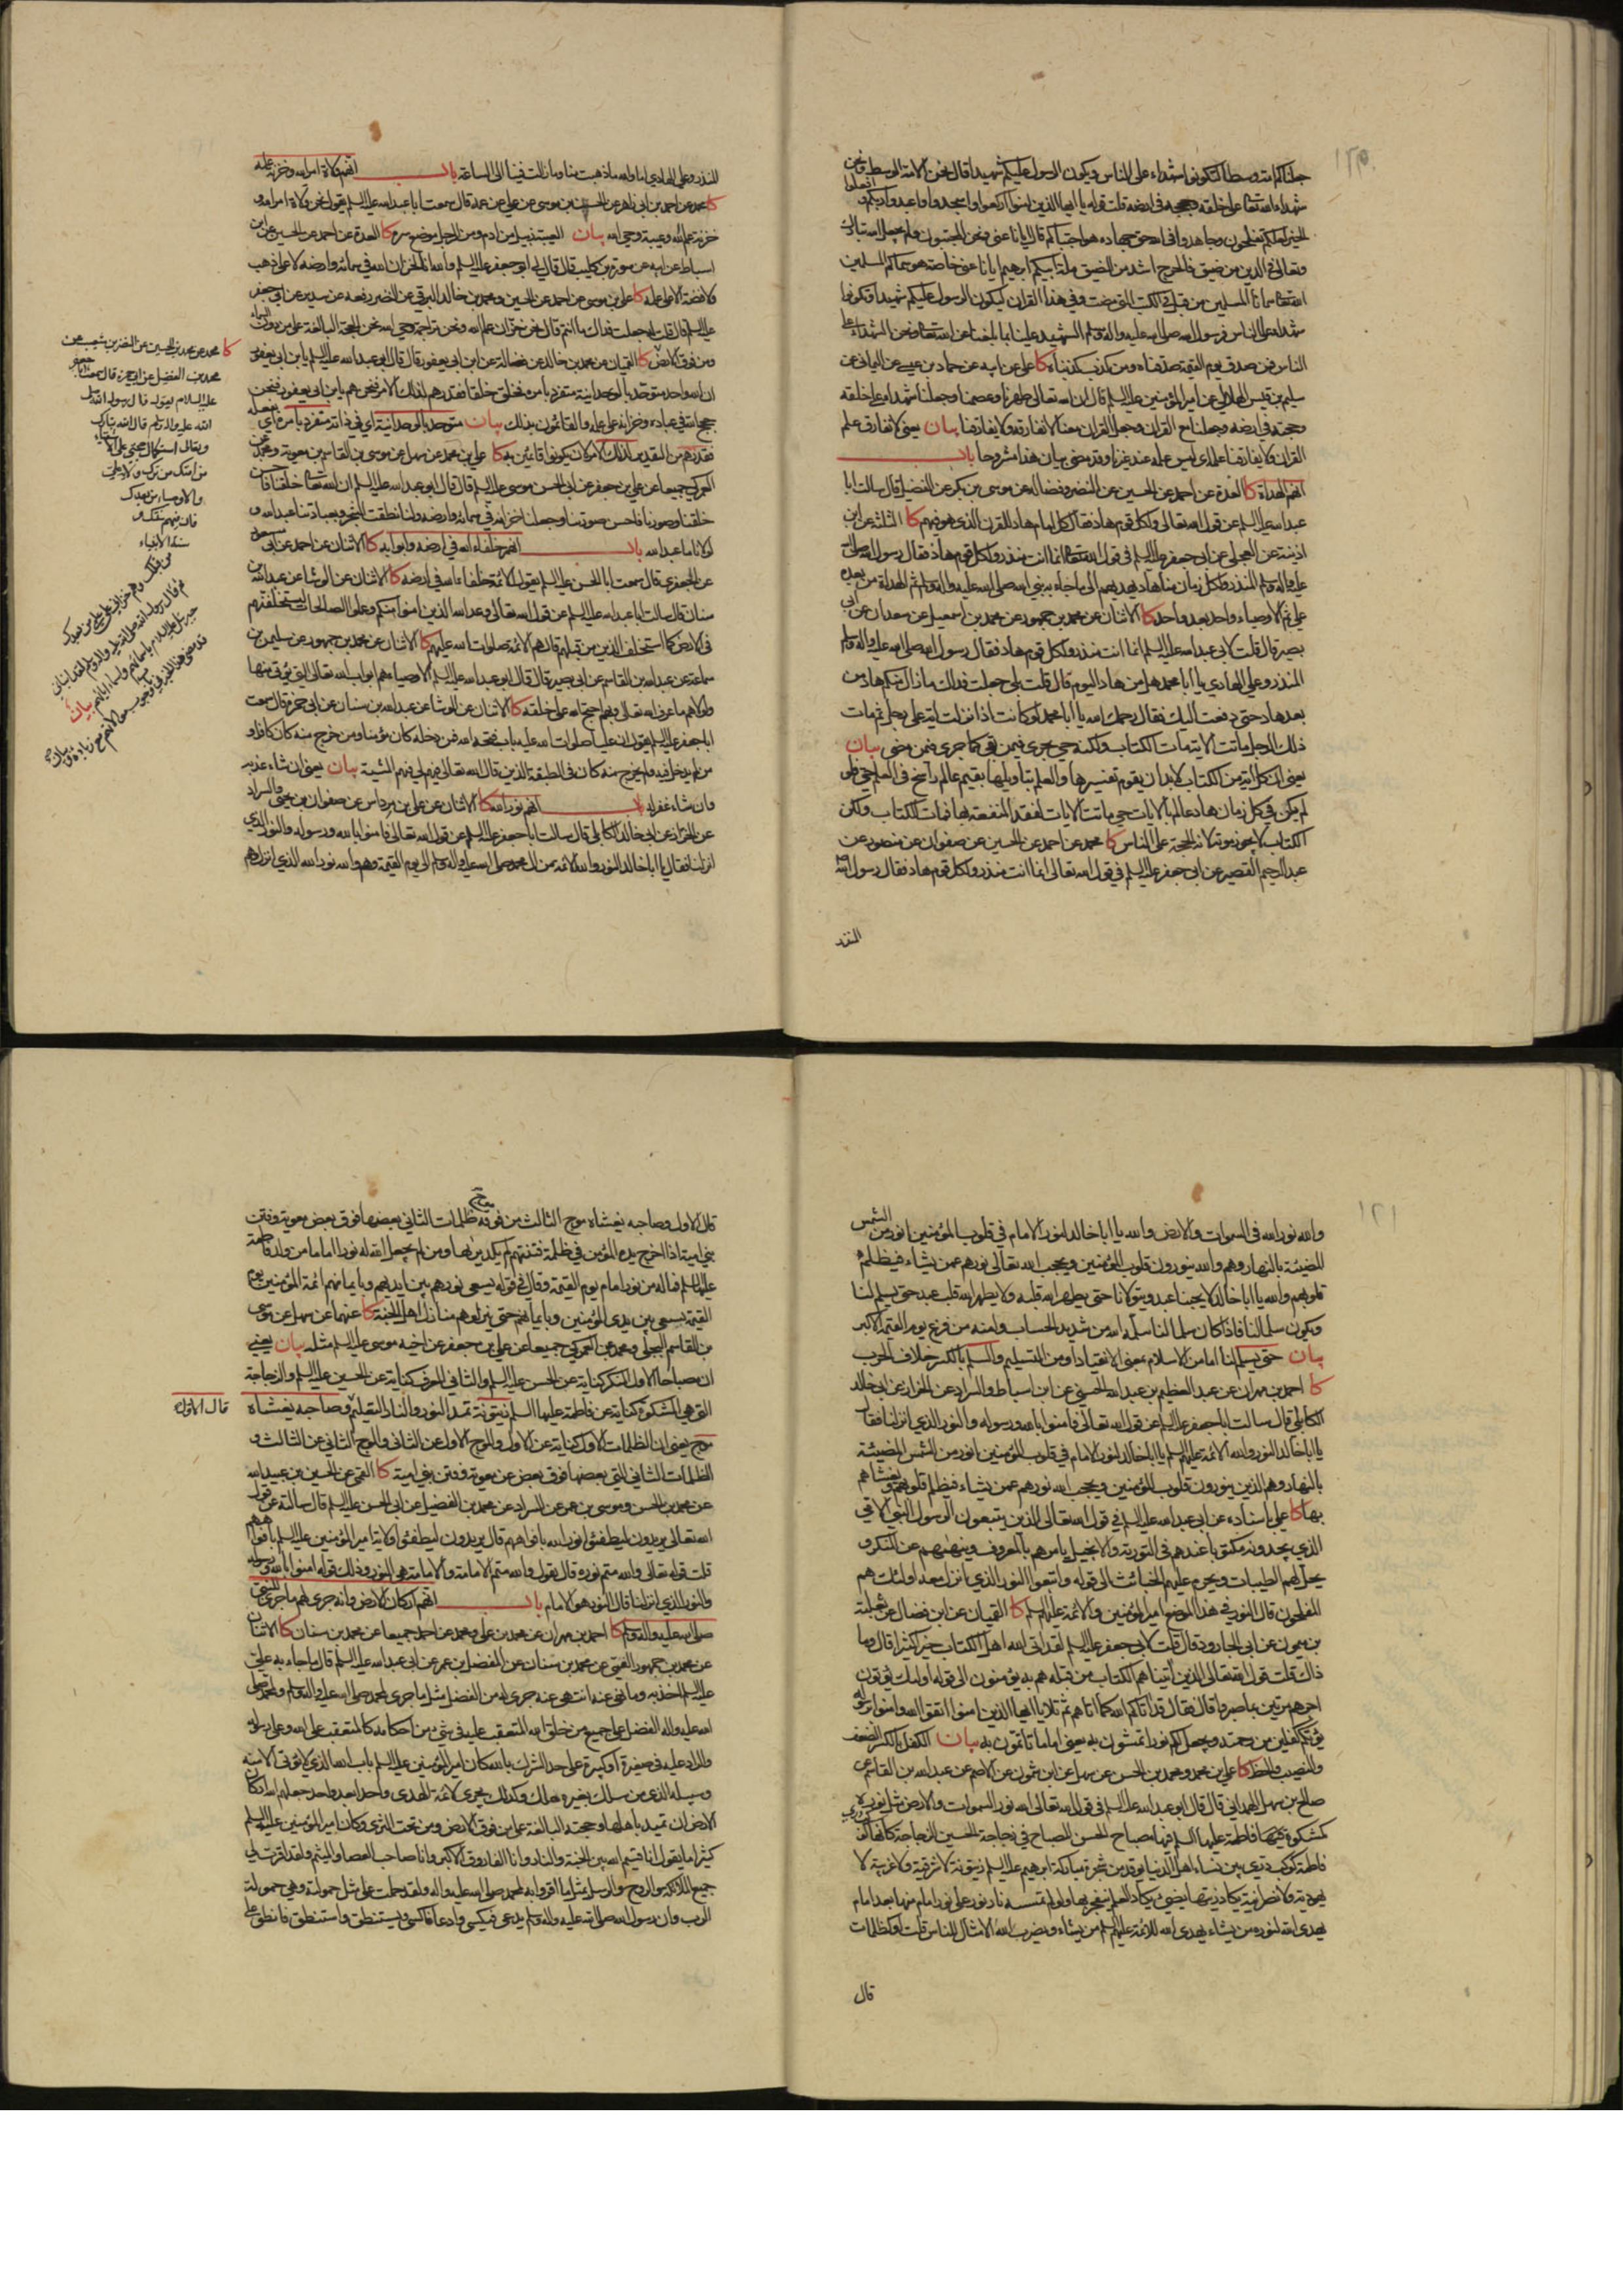 ١٢٠
جعلناكم امة وسطا لتكونوا شهداء على الناس ويكون الرسول عليكم شهيدا قال نحن الامة الوسط ونحن
شهداء الله تعالى على خلقه وحججه في ارضه قلت قوله يا ايها الذين امنوا اركعوا واسجدوا واعبدوا ربكم وافعلوا
الخير لعلكم تفلحون وجاهدوا في الله حق جهاده هو اجتباكم قال ايانا عنى ونحن المجتبون ولم يجعل الله تبارك
وتعالى في الدين من ضيق فالحرج اشد من الضيق ملة ابيكم ابرهيم ايانا عنى خاصة هو سماكم المسلمين
الله تعالى سمانا المسلمين من قبل في الكتب التي مضت وفي هذا القران ليكون الرسول عليكم شهيدا وتكونوا
شهداء على الناس فرسول الله صلى الله عليه واله وسلم الشهيد علينا بما بلغنا عن الله تعالى ونحن الشهداء على
الناس فمن صدق يوم القيمة صدقناه ومن كذب كذبناه كا علي عن ابيه عن حماد بن عيسى عن اليماني عن
سليم بن قيس الهلالي عن امير المؤمنين عليه السلم قال ان الله تعالى طهرنا وعصمنا وجعلنا شهداء على خلقه
وحجته في ارضه وجعلنا مع القران وجعل القران معنا لا نفارقه ولا يفارقنا بيان يعني لا نفارق علم
القران ولا يفارقنا علمه اي ليس علمه عند غيرنا وقد مضى بيان هذا مشروحا باب
انهم الهداة كا العدة عن احمد عن الحسين عن النضر وفضالة عن موسى بن بكر عن الفضيل قال سالت ابا
عبد الله عليه السلم عن قول الله تعالى ولكل قوم هاد فقال كل امام هاد للقرن الذي هو فيهم كا الثلثة عن ابن
اذينة عن العجلي عن ابي جعفر عليه السلم في قول الله تعالى انما انت منذر ولكل قوم هاد فقال رسول الله صلى الله
عليه واله وسلم المنذر ولكل زمان منا هاد يهديهم الى ما جاء به نبي الله صلى الله عليه واله وسلم ثم الهداة من بعده
علي ثم الاوصياء واحد بعد واحد كا الاثنان عن محمد بن جمهور عن محمد بن اسمعيل عن سعدان عن ابي
بصير قال قلت لابي عبد الله عليه السلم انما انت منذر ولكل قوم هاد فقال رسول الله صلى الله عليه واله وسلم
المنذر وعلي الهادي يا ابا محمد هل من هاد اليوم قال قلت بلى جعلت فداك ما زال منكم هاد من
بعد هاد حتى دفعت اليك فقال رحمك الله يا ابا محمد لو كانت اذا نزلت اية على رجل ثم مات
ذلك الرجل ماتت الاية مات الكتاب ولكنه حي يجري فيمن بقي كما جرى فيمن مضى بيان
يعني ان كل اية من الكتاب لابد ان يقوم تفسيرها والعلم بتاويلها بقيم عالم راسخ في العلم حي فلو
لم يكن في كل زمان هاد عالم بالايات حي ماتت الايات لفقد المنفعة بها فمات الكتاب ولكن
الكتاب لا يجوز موته لانه الحجة على الناس كا محمد عن احمد عن الحسين عن صفوان عن منصور عن
عبد الرحيم القصير عن ابي جعفر عليه السلم في قول الله تعالى انما انت منذر ولكل قوم هاد فقال رسول الله
المنذر
المنذر وعلي الهادي اما والله ما ذهبت منا وما زالت فينا الى الساعة باب انهم ولاة امر الله وخزنة علمه
كا محمد عن احمد بن ابي زاهر عن الحسن بن موسى عن علي عن عمه قال سمعت ابا عبد الله عليه السلم يقول نحن ولاة امر الله و
خزنة علم الله وعيبة وحي الله بيان العيبة زبيل من ادم ومن الرجل موضع سره كا العدة عن احمد عن الحسين عن ابن
اسباط عن ابيه عن سورة بن كليب قال قال لي ابو جعفر عليه السلم والله انا لخزان الله في سمائه وارضه لا على ذهب
ولا فضة الا على علمه كا علي بن موسى عن احمد عن الحسين ومحمد بن خالد البرقي عن النضر رفعه عن سدير عن ابي جعفر
عليه السلم قال قلت له جعلت فداك ما انتم قال نحن خزان علم الله ونحن تراجمة وحي الله نحن الحجة البالغة على من دون السماء
ومن فوق الارض كا القميان عن محمد بن خالد عن فضالة عن ابن ابي يعفور قال قال ابو عبد الله عليه السلم يا بن ابي يعفور
ان الله واحد متوحد بالوحدانية متفرد بامره فخلق خلقا فقدرهم لذلك الامر فنحن هم يا بن ابي يعفور فنحن
حجج الله في عباده وخزانه على علمه والقائمون بذلك بيان متوحد بالوحدانية اي في ذاته متفرد بامره اي
فقدرهم من التقدير لذلك الامر لان يكونوا قائمين به كا علي بن محمد عن سهل عن موسى بن القاسم بن معوية ومحمد عن
العمركي جميعا عن علي بن جعفر عن ابي الحسن موسى عليه السلم قال قال ابو عبد الله عليه السلم ان الله تعالى خلقنا فاحسن
خلقنا وصورنا فاحسن صورنا وجعلنا خزانه في سمائه وارضه ولنا نطقت الشجرة وبعبادتنا عبد الله و
لولانا ما عبد الله باب انهم خلفاء الله في ارضه وابوابه كا الاثنان عن احمد عن ابي مسعود
عن الجعفري قال سمعت ابا الحسن عليه السلم يقول الائمة خلفاء الله في ارضه كا الاثنان عن الوشا عن عبد الله بن
سنان قال سالت ابا عبد الله عليه السلم عن قول الله تعالى وعد الله الذين امنوا منكم وعملوا الصالحات ليستخلفنهم
في الارض كما استخلف الذين من قبلهم قال هم الائمة صلوات الله عليهم كا الاثنان عن محمد بن جمهور عن سليمن بن
سماعة عن عبد الله بن القاسم عن ابي بصير قال قال ابو عبد الله عليه السلم الاوصياء هم ابواب الله تعالى التي يؤتى منها
ولولاهم ما عرف الله تعالى وبهم احتج الله على خلقه كا الاثنان عن الوشا عن عبد الله بن سنان عن ابي حمزة قال سمعت
ابا جعفر عليه السلم يقول ان عليا صلوات الله عليه باب فتحه الله فمن دخله كان مؤمنا ومن خرج منه كان كافرا و
من لم يدخل فيه ولم يخرج منه كان في الطبقة الذين قال الله تعالى فيهم لي فيهم المشية بيان يعني ان شاء عذبه
وان شاء غفر له باب انهم نور الله كا الاثنان عن علي بن مرداس عن صفوان بن يحيى والسراد
عن الخراز عن ابي خالد الكابلي قال سالت ابا جعفر عليه السلم عن قول الله تعالى فامنوا بالله ورسوله والنور الذي
انزلنا فقال يا ابا خالد النور والله الائمة من ال محمد صلى الله عليه واله وسلم الى يوم القيمة وهم والله نور الله الذي انزل وهم
كا محمد عن محمد بن الحسين عن النضر بن شعيب عن
محمد بن الفضيل عن ابي حمزة قال سمعت ابا جعفر
عليه السلام يقول قال رسول الله صلى
الله عليه واله وسلم قال الله تبارك
وتعالى استكمال حجتي على الاشقياء
من امتك من ترك ولاية علي
والاوصياء من بعدك
فان فيهم سنتك و
سنة الانبياء
من قبلك وهم خزاني على علمي من بعدك
ثم قال رسول الله صلى الله عليه واله وسلم لقد انباني
جبرئيل عليه السلام باسمائهم واسماء ابائهم بيان
١٢١
والله نور الله في السموات والارض والله يا ابا خالد لنور الامام في قلوب المؤمنين انور من الشمس
المضيئة بالنهار وهم والله ينورون قلوب المؤمنين ويحجب الله تعالى نورهم عمن يشاء فيظلم
قلوبهم والله يا ابا خالد لا يحبنا عبد ويتولانا حتى يطهر الله قلبه ولا يطهر الله قلب عبد حتى يسلم لنا
ويكون سلما لنا فاذا كان سلما لنا سلمه الله من شديد الحساب وامنه من فزع يوم القيمة الاكبر
بيان حتى يسلم لنا اما من الاسلام بمعنى الانقياد او من التسليم والسلم بالكسر خلاف الحرب
كا احمد بن مهران عن عبد العظيم بن عبد الله الحسني عن ابن اسباط والسراد عن الخراز عن ابي خالد
الكابلي قال سالت ابا جعفر عليه السلم عن قول الله تعالى فامنوا بالله ورسوله والنور الذي انزلنا فقال
يا ابا خالد النور والله الائمة عليهم السلم يا ابا خالد لنور الامام في قلوب المؤمنين انور من الشمس المضيئة
بالنهار وهم الذين ينورون قلوب المؤمنين ويحجب الله نورهم عمن يشاء فتظلم قلوبهم ويغشاهم
بها كا علي باسناده عن ابي عبد الله عليه السلم في قول الله تعالى الذين يتبعون الرسول النبي الامي
الذي يجدونه مكتوبا عندهم في التورية والانجيل يامرهم بالمعروف وينهيهم عن المنكر و
يحل لهم الطيبات ويحرم عليهم الخبائث الى قوله واتبعوا النور الذي انزل معه اولئك هم
المفلحون قال النور في هذا الموضع امير المؤمنين والائمة عليهم السلم كا القميان عن ابن فضال عن ثعلبة
بن ميمون عن ابي الجارود قال قلت لابي جعفر عليه السلم لقد اتى الله اهل الكتاب خيرا كثيرا قال وما
ذاك قلت قول الله تعالى الذين اتيناهم الكتاب من قبله هم به يؤمنون الى قوله اولئك يؤتون
اجرهم مرتين بما صبروا قال فقال قد اتاكم الله كما اتاهم ثم تلا يا ايها الذين امنوا اتقوا الله وامنوا برسوله
يؤتكم كفلين من رحمته ويجعل لكم نورا تمشون به يعني اماما تاتمون به بيان الكفل بالكسر الضعف
والنصيب والحظ كا علي بن محمد ومحمد بن الحسن عن سهل عن ابن شمون عن الاصم عن عبد الله بن القاسم عن
صالح بن سهل الهمداني قال قال ابو عبد الله عليه السلم في قول الله تعالى الله نور السموات والارض مثل نوره
كمشكوة فيها فاطمة عليها السلم فيها مصباح الحسن المصباح في زجاجة الحسين الزجاجة كانها كوكب دري
فاطمة كوكب دري بين نساء اهل الدنيا يوقد من شجرة مباركة ابرهيم عليه السلم زيتونة لا شرقية ولا غربية لا
يهودية ولا نصرانية يكاد زيتها يضيئ يكاد العلم ينفجر بها ولو لم تمسسه نار نور على نور امام منها بعد امام
يهدي الله لنوره من يشاء يهدي الله للائمة عليهم السلم من يشاء ويضرب الله الامثال للناس قلت او كظلمات
قال
قال الاول وصاحبه يغشاه موج الثالث من فوقه موج ظلمات الثاني بعضها فوق بعض معوية وفتن
بني امية اذا اخرج يده المؤمن في ظلمة فتنتهم لم يكد يراها ومن لم يجعل الله له نورا اماما من ولد فاطمة
عليها السلم فما له من نور امام يوم القيمة وقال في قوله يسعى نورهم بين ايديهم وبايمانهم ائمة المؤمنين يوم
القيمة يسعى بين يدي المؤمنين وبايمانهم حتى ينزلوهم منازل اهل الجنة كا عنهما عن سهل عن موسى
بن القاسم البجلي ومحمد عن العمركي جميعا عن علي بن جعفر عن اخيه موسى عليه السلم مثله بيان يعني
ان مصباحا الاول المنكر كناية عن الحسن عليه السلم والثاني المعرف كناية عن الحسين عليه السلم والزجاجة
التي هي المشكوة كناية عن فاطمة عليها السلم زيتونة تمد النور والنار التعليم وصاحبه يغشاه
قال الاول
موج يعني ان الظلمات الاول كناية عن الاول والموج الاول عن الثاني والموج الثاني عن الثالث و
الظلمات الثاني التي بعضها فوق بعض عن معوية وفتن بني امية كا القمي عن الحسين بن عبيد الله
عن محمد بن الحسن وموسى بن عمر عن السراد عن محمد بن الفضيل عن ابي الحسن عليه السلم قال سالته عن قول
الله تعالى يريدون ليطفئوا نور الله بافواههم قال يريدون ليطفئوا ولاية امير المؤمنين عليه السلم بافواههم
قلت قوله تعالى والله متم نوره قال يقول والله متم الامامة والامامة هي النور وذلك قوله امنوا بالله ورسوله
والنور الذي انزلنا قال النور هو الامام باب انهم اركان الارض وانه جرى لهم ما جرى للنبي
صلى الله عليه واله وسلم كا احمد بن مهران عن محمد بن علي ومحمد عن احمد جميعا عن محمد بن سنان كا الاثنان
عن محمد بن جمهور القمي عن محمد بن سنان عن المفضل بن عمر عن ابي عبد الله عليه السلم قال ما جاء به علي
عليه السلم اخذ به وما نهى عنه انتهي عنه جرى له من الفضل مثل ما جرى لمحمد صلى الله عليه واله وسلم ولمحمد صلى
الله عليه واله الفضل على جميع من خلق الله المتعقب عليه في شيء من احكامه كالمتعقب على الله وعلى رسوله
والراد عليه في صغيرة او كبيرة على حد الشرك بالله كان امير المؤمنين عليه السلم باب الله الذي لا يؤتى الا منه
وسبيله الذي من سلك بغيره هلك وكذلك يجري لائمة الهدى واحدا بعد واحد جعلهم الله اركان
الارض ان تميد باهلها وحجته البالغة على من فوق الارض ومن تحت الثرى وكان امير المؤمنين عليه السلم
كثيرا ما يقول انا قسيم الله بين الجنة والنار وانا الفاروق الاكبر وانا صاحب العصا والميسم ولقد اقرت لي
جميع الملائكة والروح والرسل بمثل ما اقروا به لمحمد صلى الله عليه واله ولقد حملت على مثل حمولته وهي حمولة
الرب وان رسول الله صلى الله عليه واله وسلم يدعى فيكسى وادعى فاكسى ويستنطق واستنطق فانطق على